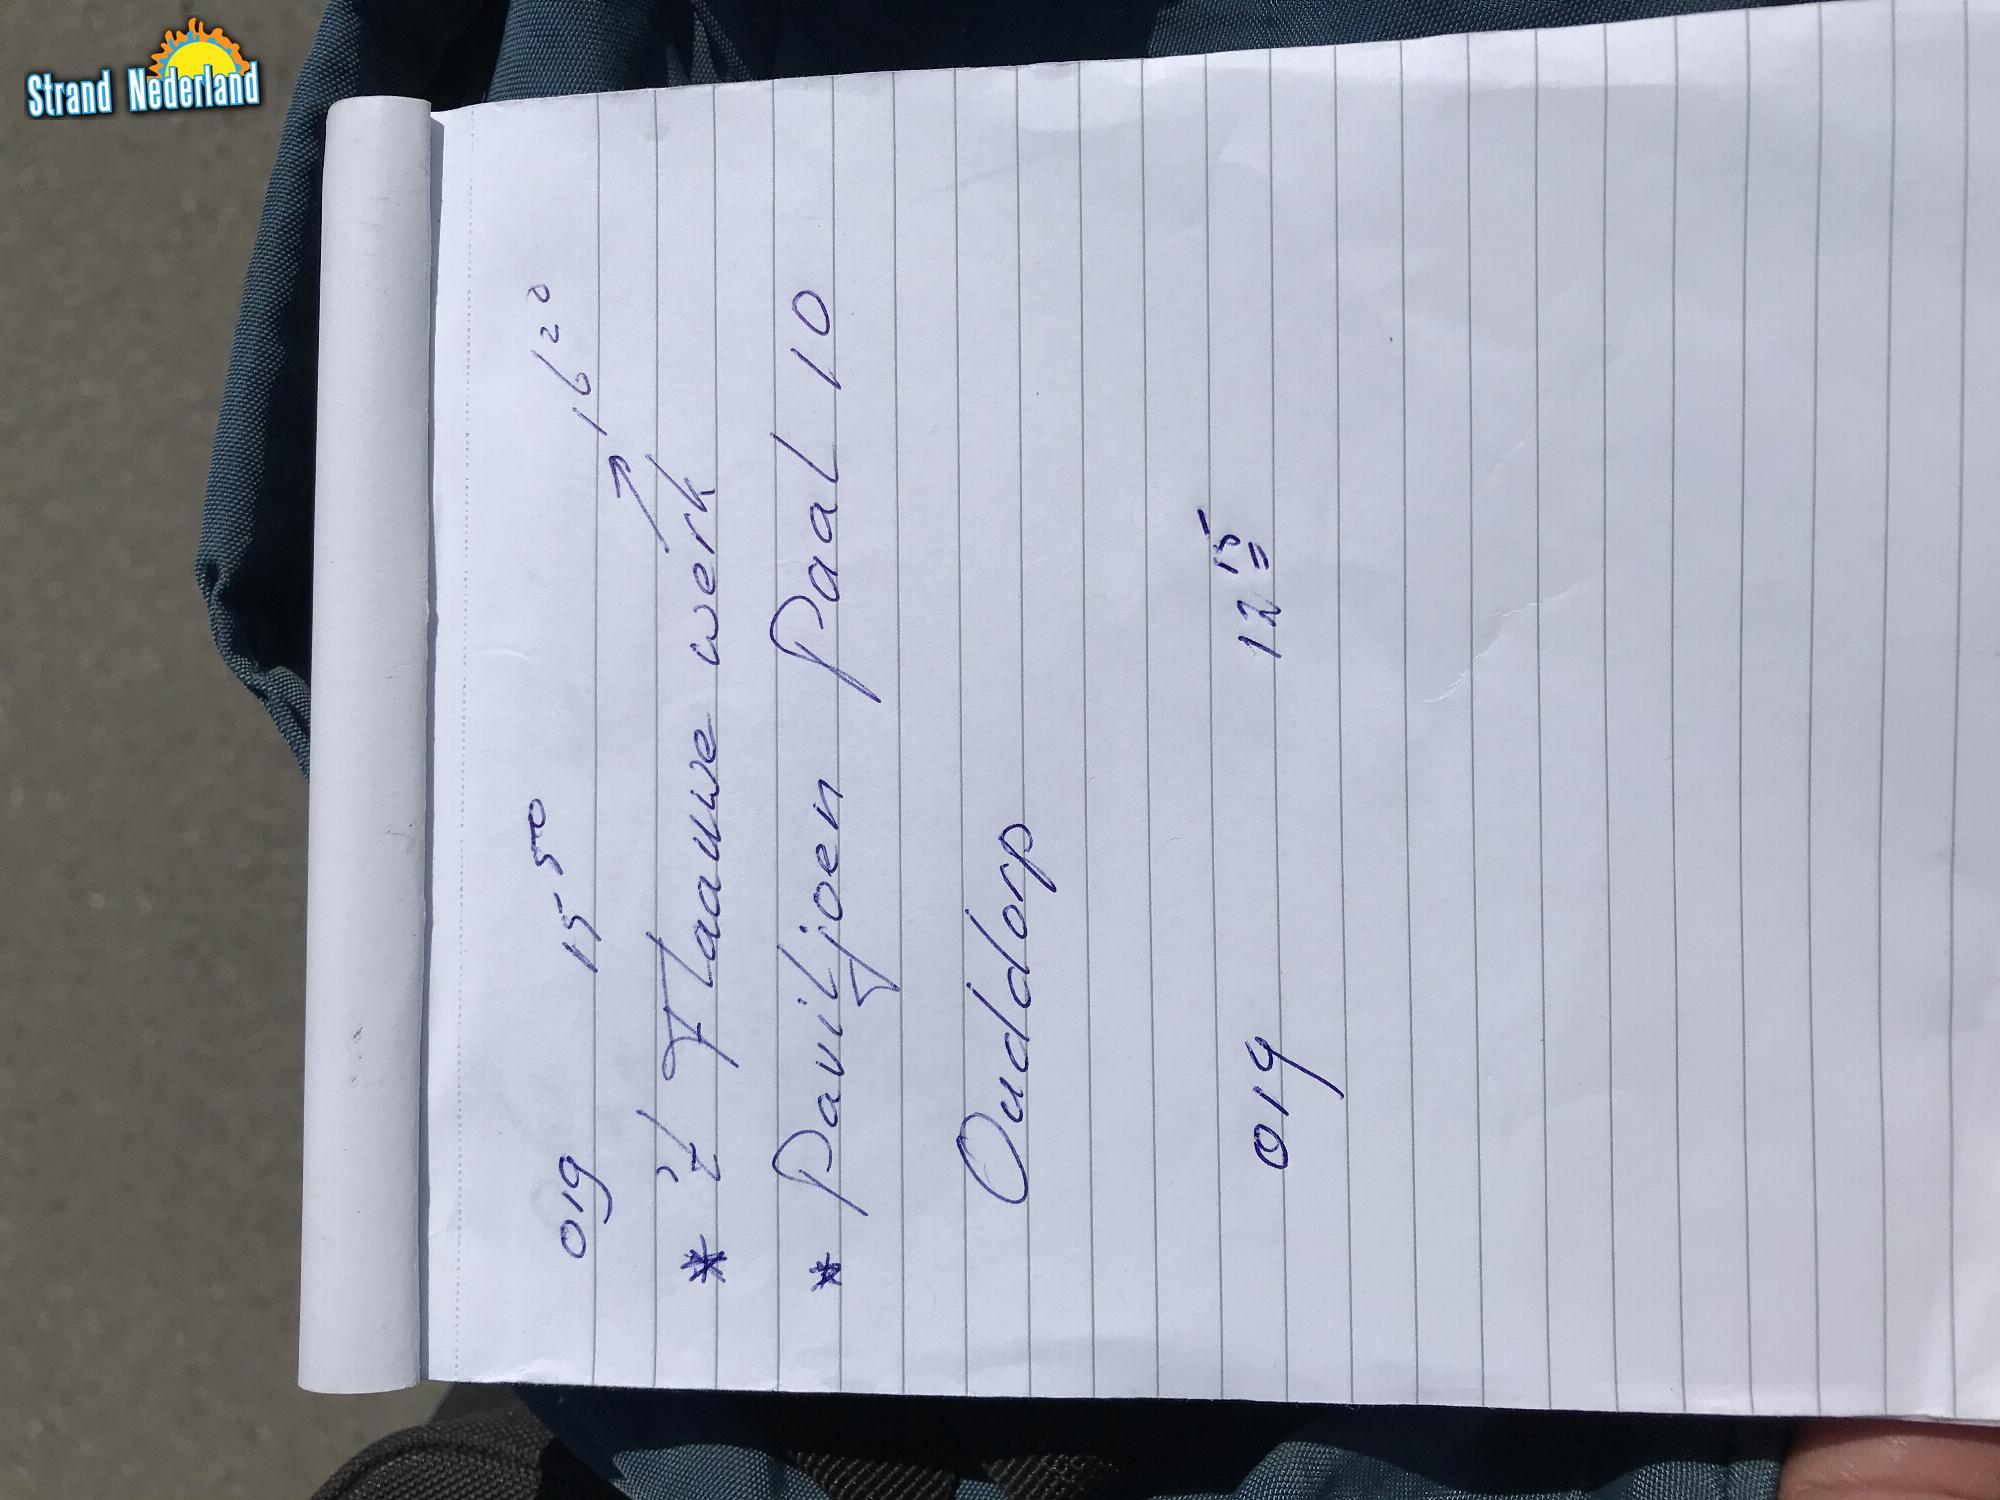 Strand Nederland
019 15 50 16 20
* 't Flaauwe werk
* Paviljoen Paal 10
Ouddorp
019 12 15